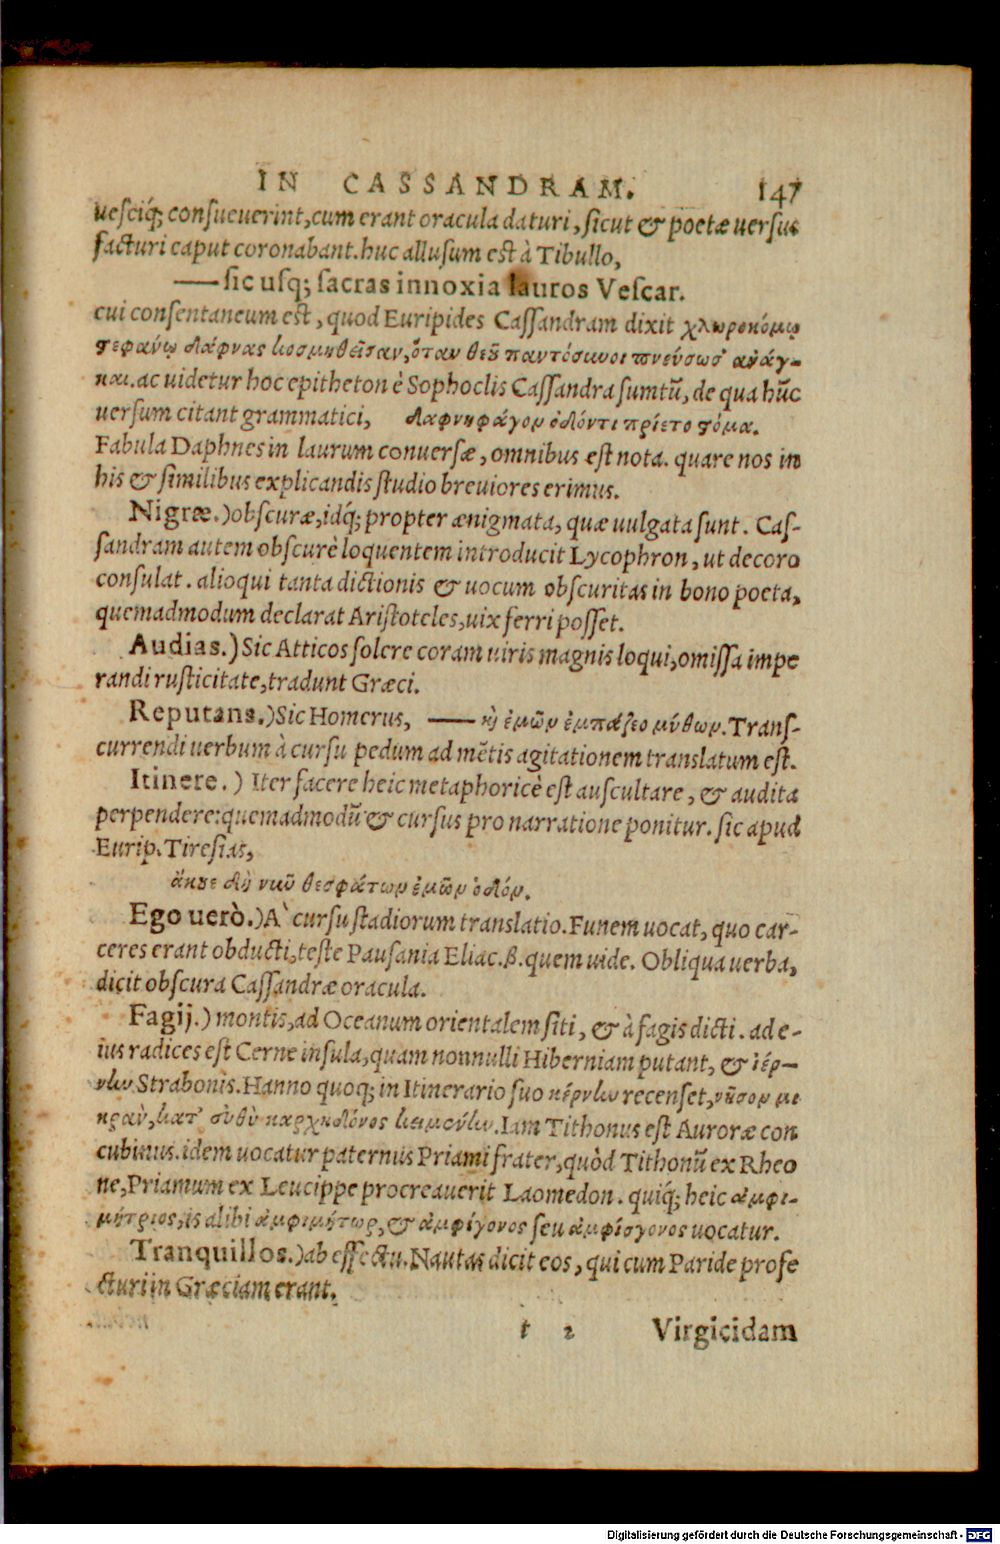 IN CASSANDRAM. 147
uesciq́; consueuerint, cum erant oracula daturi, sicut & poetæ uersus
facturi caput coronabant. huc allusum est à Tibullo,
—— sic usq; sacras innoxia lauros Vescar.
cui consentaneum est, quod Euripides Cassandram dixit χλωροκόμῳ
στεφάνῳ δάφνας κοσμηθεῖσαν, ὅταν θεȣ͂ παντόσυνοι πνεύσωσ᾽ ἀνάγ-
και. ac uidetur hoc epitheton è Sophoclis Cassandra sumtũ, de qua hũc
uersum citant grammatici, δαφνηφάγον ὀδόντι πρίετο στόμα.
Fabula Daphnes in laurum conuersæ, omnibus est nota. quare nos in
his & similibus explicandis studio breuiores erimus.
Nigræ.) obscuræ, idq́; propter ænigmata, quæ uulgata sunt. Cas-
sandram autem obscurè loquentem introducit Lycophron, ut decoro
consulat. alioqui tanta dictionis & uocum obscuritas in bono poeta,
quemadmodum declarat Aristoteles, uix ferri posset.
Audias.) Sic Atticos solere coram uiris magnis loqui, omissa impe
randi rusticitate, tradunt Græci.
Reputans.) Sic Homerus, —— κὴ ἐμῶν ἐμπάζεο μύθων. Trans-
currendi uerbum à cursu pedum ad mẽtis agitationem translatum est.
Itinere.) Iter facere heic metaphoricè est auscultare, & audita
perpendere: quemadmodũ & cursus pro narratione ponitur. sic apud
Eurip. Tiresias,
ἄκȣε δὴ νιῦ θεσφάτων ἐμῶν ὁδόν.
Ego uerò.) A` cursu stadiorum translatio. Funem uocat, quo car-
ceres erant obducti, teste Pausania Eliac. β. quem uide. Obliqua uerba,
dicit obscura Cassandræ oracula.
Fagij.) montis, ad Oceanum orientalem siti, & à fagis dicti. ad e-
ius radices est Cerne insula, quam nonnulli Hiberniam putant, & ἰέρ-
νην Strabonis. Hanno quoq; in Itinerario suo κέρνην recenset, νῆσον μι
κρὰν, κατ᾽ εὐθὺ καρχηδόνος κειμένην. Iam Tithonus est Auroræ con
cubinus. idem uocatur paternus Priami frater, quòd Tithonũ ex Rheo
ne, Priamum ex Leucippe procreauerit Laomedon. quiq́; heic ἀμφι-
μήτριος, is alibi ἀμφιμήτωρ, & ἀμφίγονος seu ἀμφίσγονος uocatur.
Tranquillos.) ab effectu. Nautas dicit eos, qui cum Paride profe
cturi in Græciam erant.
t 2 Virgicidam
Digitalisierung gefördert durch die Deutsche Forschungsgemeinschaft - DFG